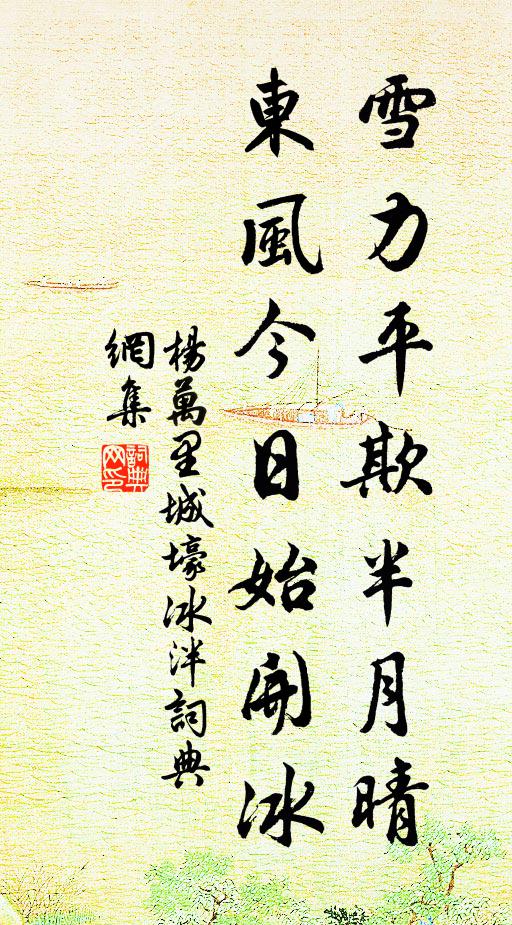 雪力平欺半月晴
東風今日始開冰
楊萬里城壕冰泮詞典
網集
詞典
网印